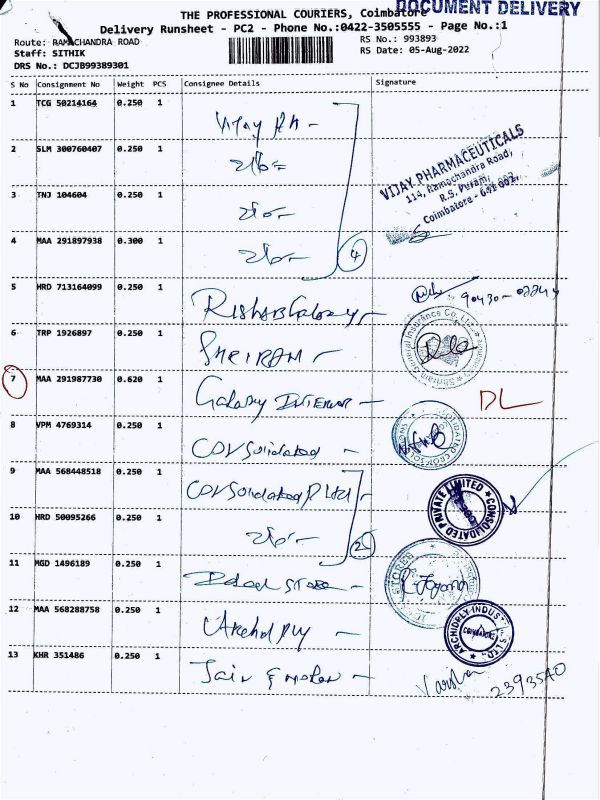 DOCUMENT DELIVERY
THE PROFESSIONAL COURIERS, Coimbatore
Delivery Runsheet - PC2 - Phone No.:0422-3505555 - Page No.:1
Route: RAMACHANDRA ROAD
RS No.: 993893
Staff: SITHIK
RS Date: 05-Aug-2022
DRS No.: DCJB99389301
S No Consignment No Weight PCS Consignee Details Signature
1 TCG 50214164 0.250 1 Vijay PA -
2 SLM 300760407 0.250 1
VIJAY PHARMACEUTICALS
114, Ramachandra Road,
R.S. Puram,
Coimbatore - 641 002.
3 TNJ 104604 0.250 1
4 MAA 291897938 0.300 1 4
5 HRD 713164099 0.250 1
6 TRP 1926897 0.250 1 SHRIRAM -
Shriram General Insurance Co. Ltd.
7 MAA 291987730 0.620 1 Galaxy - DL
8 VPM 4769314 0.250 1 Consolidated -
9 MAA 568448518 0.250 1 Consolidated P Ltd -
CONSOLIDATED PRIVATE LIMITED
10 HRD 50095266 0.250 1 2
11 MGD 1496189 0.250 1 Store -
12 MAA 568288758 0.250 1 Archid Ply -
ARCHIDPLY INDUS
13 KHR 351486 0.250 1 Jain & -
Varsha 2393540